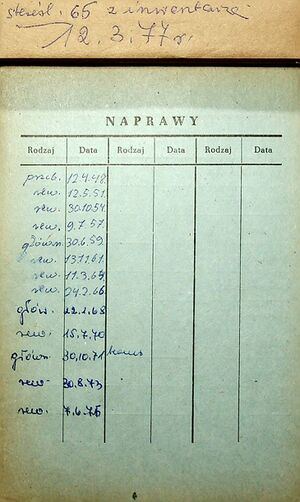 65 z inwentarza
12.3.77 r.
NAPRAWY
Rodzaj Data Rodzaj Data Rodzaj Data
przeb. 12.4.48
rew. 12.5.51
rew. 30.10.54
rew. 9.7.57
główn. 30.6.59
rew. 13.11.61
rew. 11.3.64
rew. 24.2.66
głów. 12.1.68
rew. 15.7.70
główn. 30.10.71
rew. 30.8.73
rew. 7.6.75